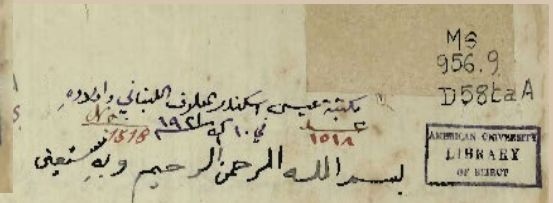 Ms
956.9
D58taA
مكتبة عيسى اسكندر المعلوف اللبناني واولاده
No 1518
عدد ١٥١٨
في ١٠ ك ١٩٢١
AMERICAN UNIVERSITY
LIBRARY
OF BEIRUT
بسم الله الرحمن الرحيم وبه نستعين